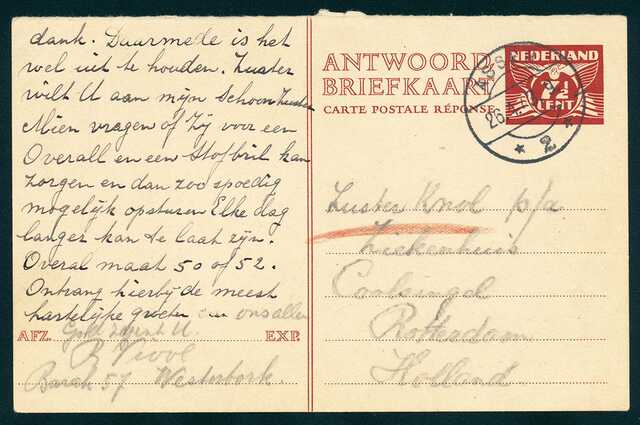 dank. Daarmede is het
wel uit te houden. Zuster
wilt U aan mijn Schoonzuster
Mien vragen of Zij voor een
Overall en een Stofbril kan
zorgen en dan zoo spoedig
mogelijk opsturen Elke dag
langer kan te laat zijn.
Overal maat 50 of 52.
Ontvang hierbij de meest
hartelijke groeten van ons allen
AFZ. EXP.
Barak 57 Westerbork.
ANTWOORD
BRIEFKAART
CARTE POSTALE RÉPONSE
NEDERLAND
7½
CENT
ASSEN
26
2
Zuster Knol p/a
Ziekenhuis
Coolsingel
Rotterdam
Holland